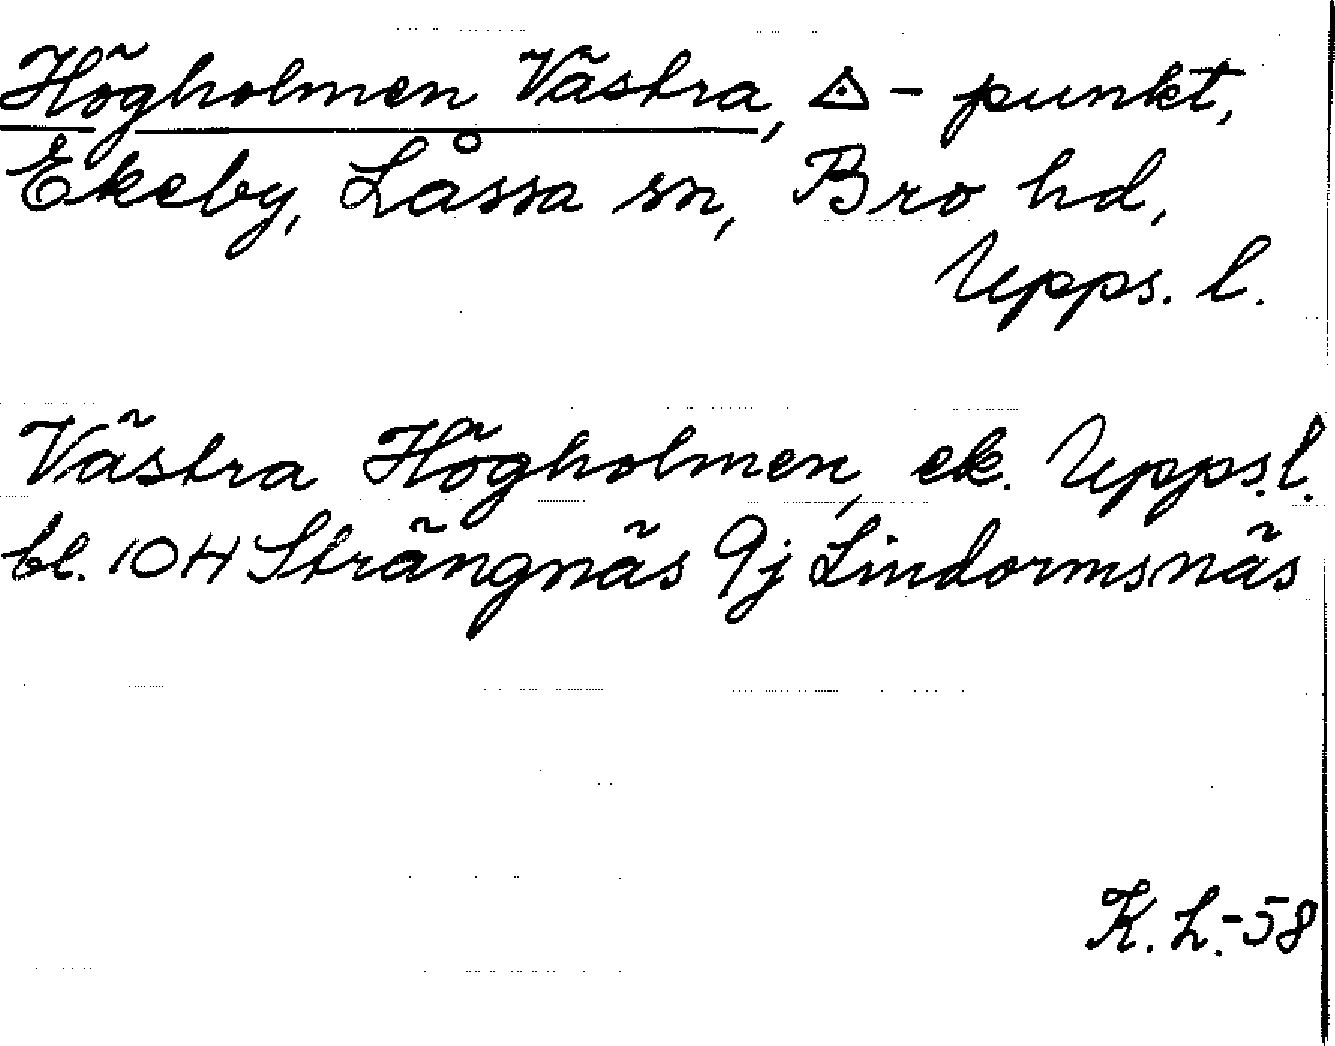 Högholmen Västra, △ - punkt,
Ekeby, Låssa sn, Bro hd,
Upps. l.
Västra Högholmen, ek. Upps.l.
bl. 10H Strängnäs 9j Lindormsnäs
K. L.-58